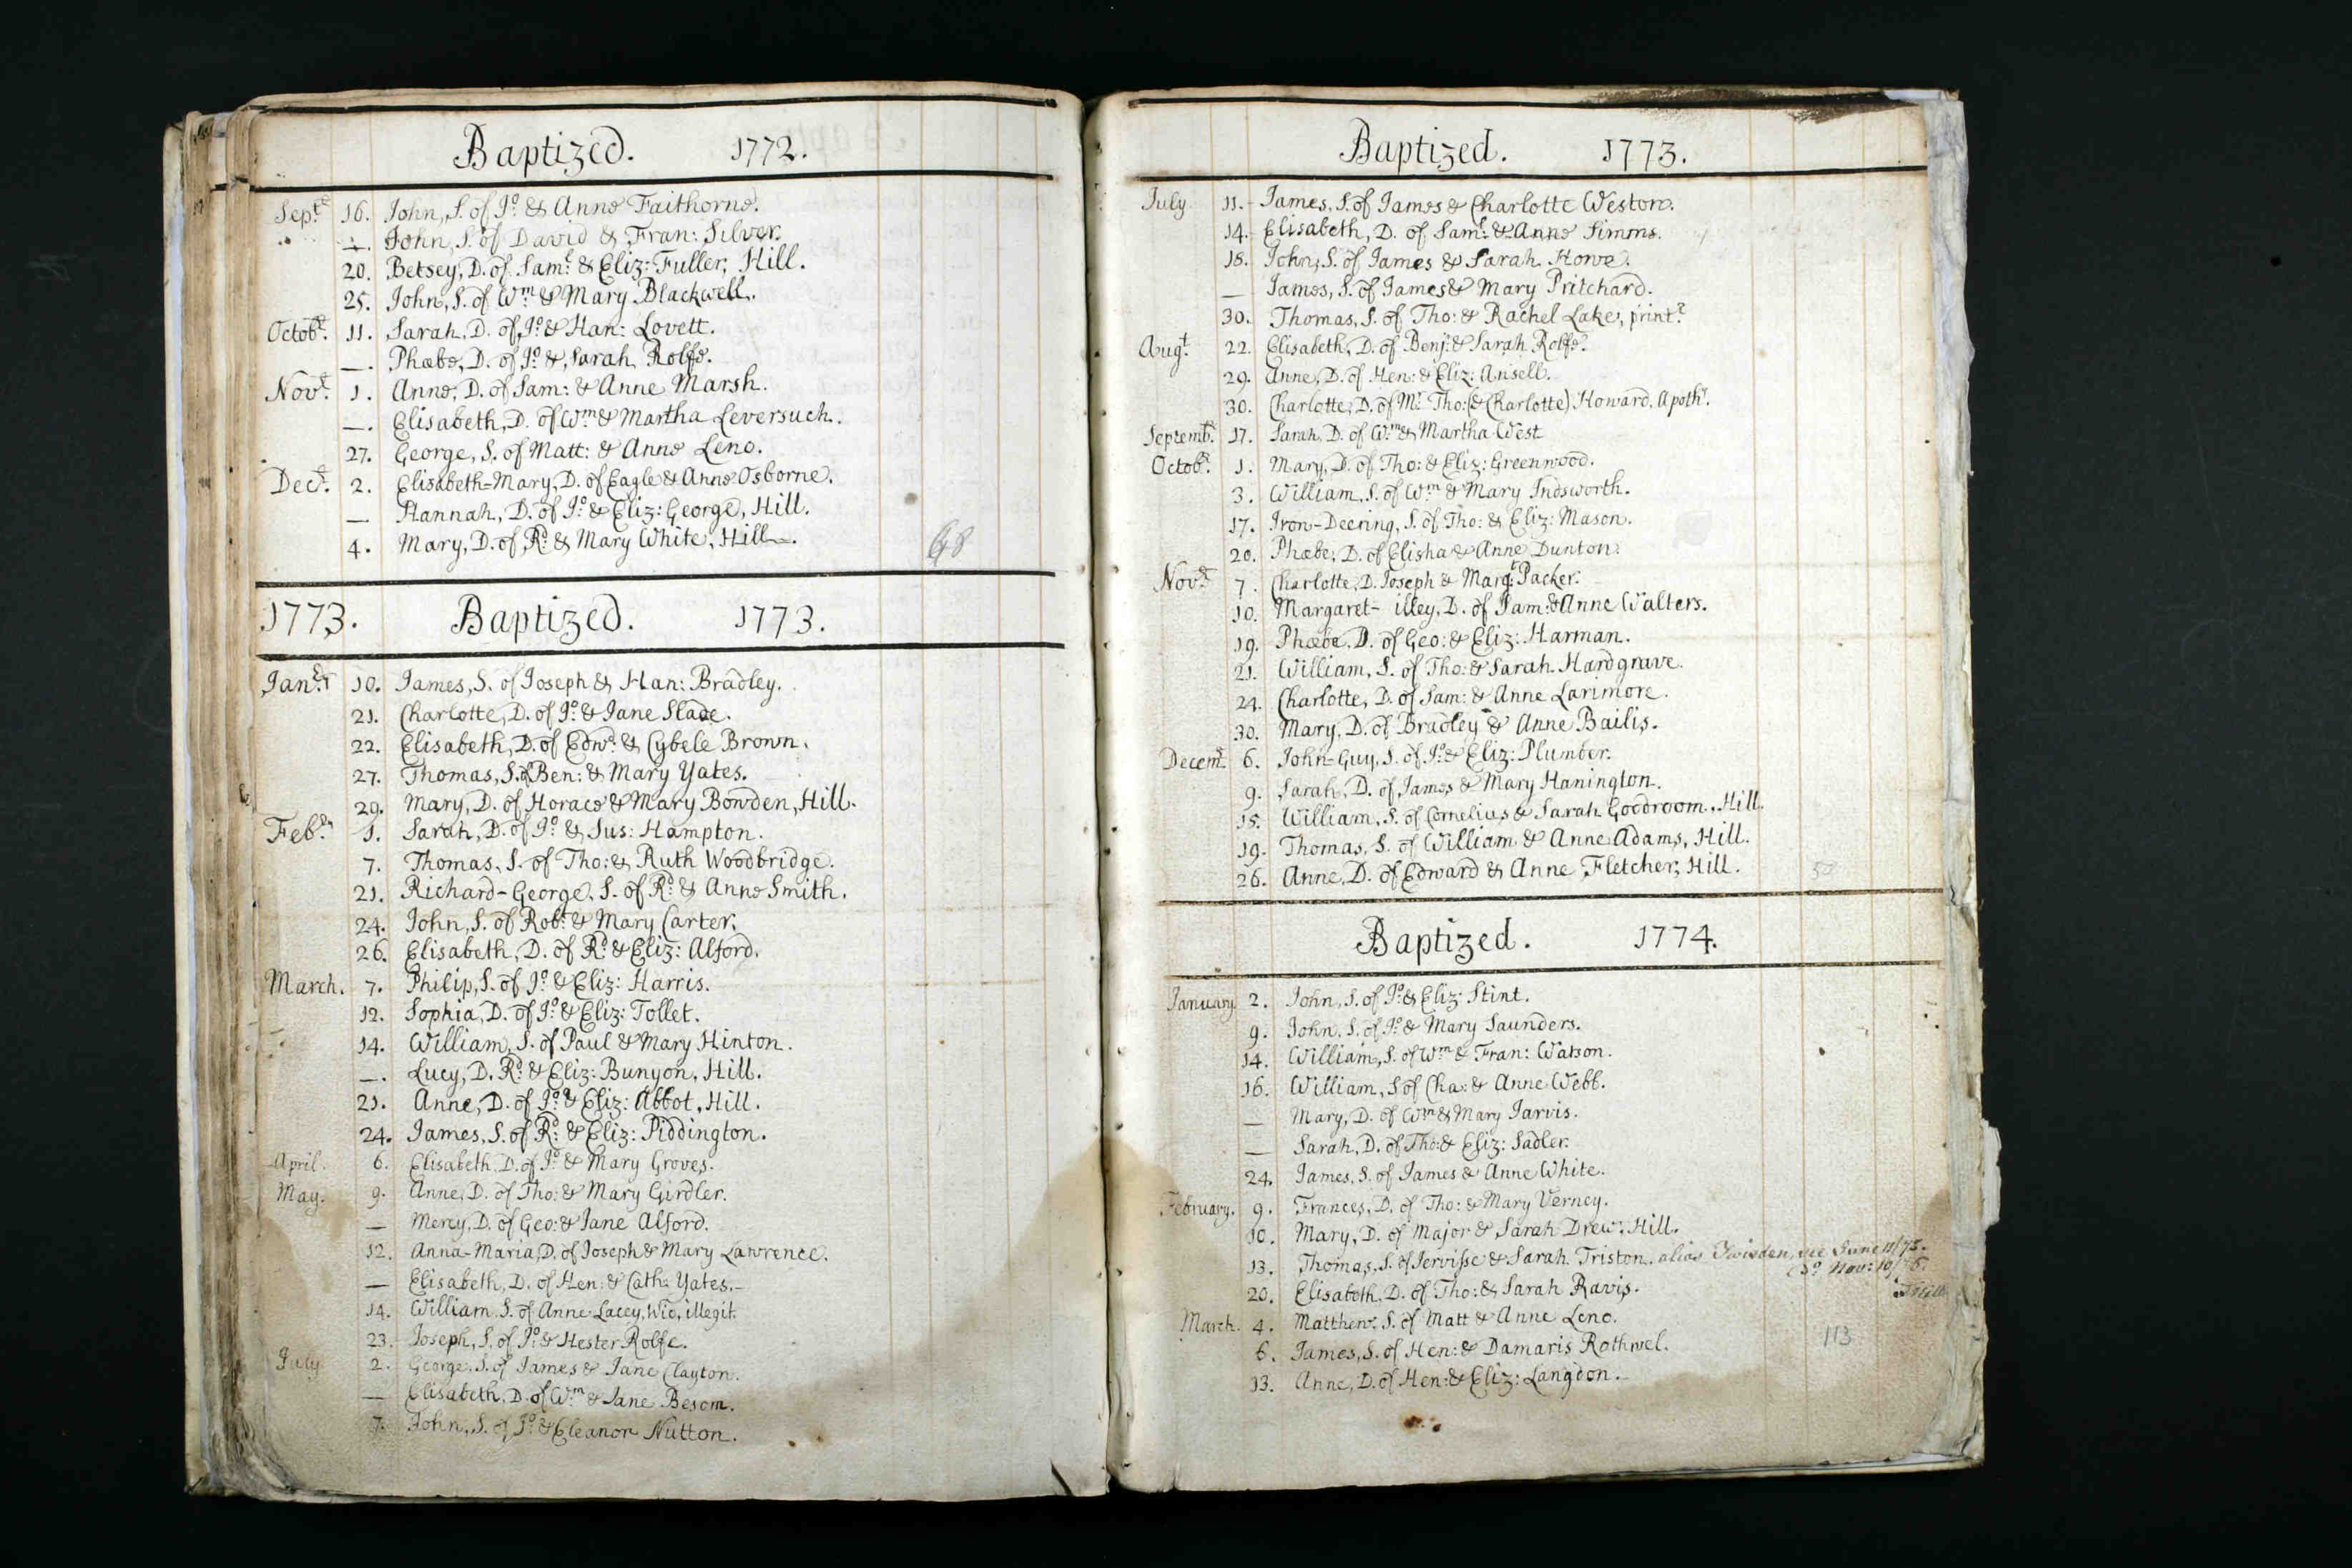 Baptized. 1772.
Septr. 16. John, S. of Jo. & Anne Faithorne.
John, S. of David & Fran: Silver.
20. Betsey, D. of Saml. & Eliz: Fuller, Hill.
25. John, S. of Wm. & Mary Blackwell.
Octobr. 11. Sarah, D. of Jo. & Han: Lovett.
—. Phœbe, D. of Jo. & Sarah Rolfe.
Novr. 1. Anne, D. of Sam: & Anne Marsh.
—. Elisabeth, D. of Wm. & Martha Leversuch.
27. George, S. of Matt: & Anne Leno.
Decr. 2. Elisabeth-Mary, D. of Eagle & Anne Osborne.
—. Hannah, D. of Jo. & Eliz: George, Hill.
4. Mary, D. of Rd. & Mary White, Hill. 68
1773. Baptized. 1773.
Janry. 10. James, S. of Joseph & Han: Bradley.
21. Charlotte, D. of Jo. & Jane Slade.
22. Elisabeth, D. of Edwd. & Cybele Brown.
27. Thomas, S. of Ben: & Mary Yates.
29. Mary, D. of Horace & Mary Bowden, Hill.
Febry. 1. Sarah, D. of Jo. & Sus: Hampton.
7. Thomas, S. of Tho: & Ruth Woodbridge.
21. Richard-George, S. of Rd. & Anne Smith.
24. John, S. of Robt. & Mary Carter.
26. Elisabeth, D. of Rd. & Eliz: Alford.
March. 7. Philip, S. of Jo. & Eliz: Harris.
12. Sophia, D. of Jo. & Eliz: Tollet.
14. William, S. of Paul & Mary Hinton.
—. Lucy, D. Rd. & Eliz: Bunyon, Hill.
21. Anne, D. of Jo. & Eliz: Abbot, Hill.
24. James, S. of Rd. & Eliz: Piddington.
April. 6. Elisabeth, D. of Jo. & Mary Groves.
May. 9. Anne, D. of Tho: & Mary Girdler.
— Mercy, D. of Geo: & Jane Alford.
12. Anna-Maria, D. of Joseph & Mary Lawrence.
— Elisabeth, D. of Hen: & Cath: Yates.
14. William, S. of Anne Lacey, Wid, illegit.
23. Joseph, S. of Jo. & Hester Rolfe.
July 2. George, S. of James & Jane Clayton.
— Elisabeth, D. of Wm. & Jane Besom.
7. John, S. of Jo. & Eleanor Nutton.
Baptized. 1773.
July 11. James, S. of James & Charlotte Weston.
14. Elisabeth, D. of Saml. & Anne Simms.
18. John, S. of James & Sarah Howe.
— James, S. of James & Mary Pritchard.
30. Thomas, S. of Tho: & Rachel Lake, printr.
Augt. 22. Elisabeth, D. of Benj: & Sarah Rolfe.
29. Anne, D. of Hen: & Eliz: Ansell.
30. Charlotte, D. of Mr. Tho: (& Charlotte) Howard, Apothy.
Septembr. 17. Sarah, D. of Wm. & Martha West
Octobr. 1. Mary, D. of Tho: & Eliz: Greenwood.
3. William, S. of Wm. & Mary Indsworth.
17. Iron-Deering, S. of Tho: & Eliz: Mason.
20. Phœbe, D. of Elisha & Anne Dunton.
Novr. 7. Charlotte, D. Joseph & Margt. Packer.
10. Margaret- illey, D. of Sam: & Anne Walters.
19. Phœbe, D. of Geo: & Eliz: Harman.
21. William, S. of Tho: & Sarah Hardgrave.
24. Charlotte, D. of Sam: & Anne Larimore.
30. Mary, D. of Bradley & Anne Bailis.
Decemr. 6. John-Guy, S. of Jo. & Eliz: Plumber.
9. Sarah, D. of James & Mary Hanington.
15. William, S. of Cornelius & Sarah Goodroom, Hill.
19. Thomas, S. of William & Anne Adams, Hill.
26. Anne, D. of Edward & Anne Fletcher, Hill.
Baptized. 1774.
January 2. John, S. of Jo. & Eliz: Stint.
9. John, S. of Jo. & Mary Saunders.
14. William, S. of Wm. & Fran: Watson.
16. William, S of Cha: & Anne Webb.
— Mary, D. of Wm & Mary Jarvis.
— Sarah, D. of Tho: & Eliz: Sadler.
24. James, S. of James & Anne White.
February. 9. Frances, D. of Tho: & Mary Verney.
10. Mary, D. of Major & Sarah Drew, Hill.
13. Thomas, S. of Jervisse & Sarah Triston, alias Twisden, see June 11/75.
Do. Nov: 10/76.
20. Elisabeth, D. of Tho: & Sarah Ravis.
March. 4. Matthew, S. of Matt & Anne Leno.
6. James, S. of Hen: & Damaris Rothwel. 113
13. Anne, D. of Hen: & Eliz: Langdon.